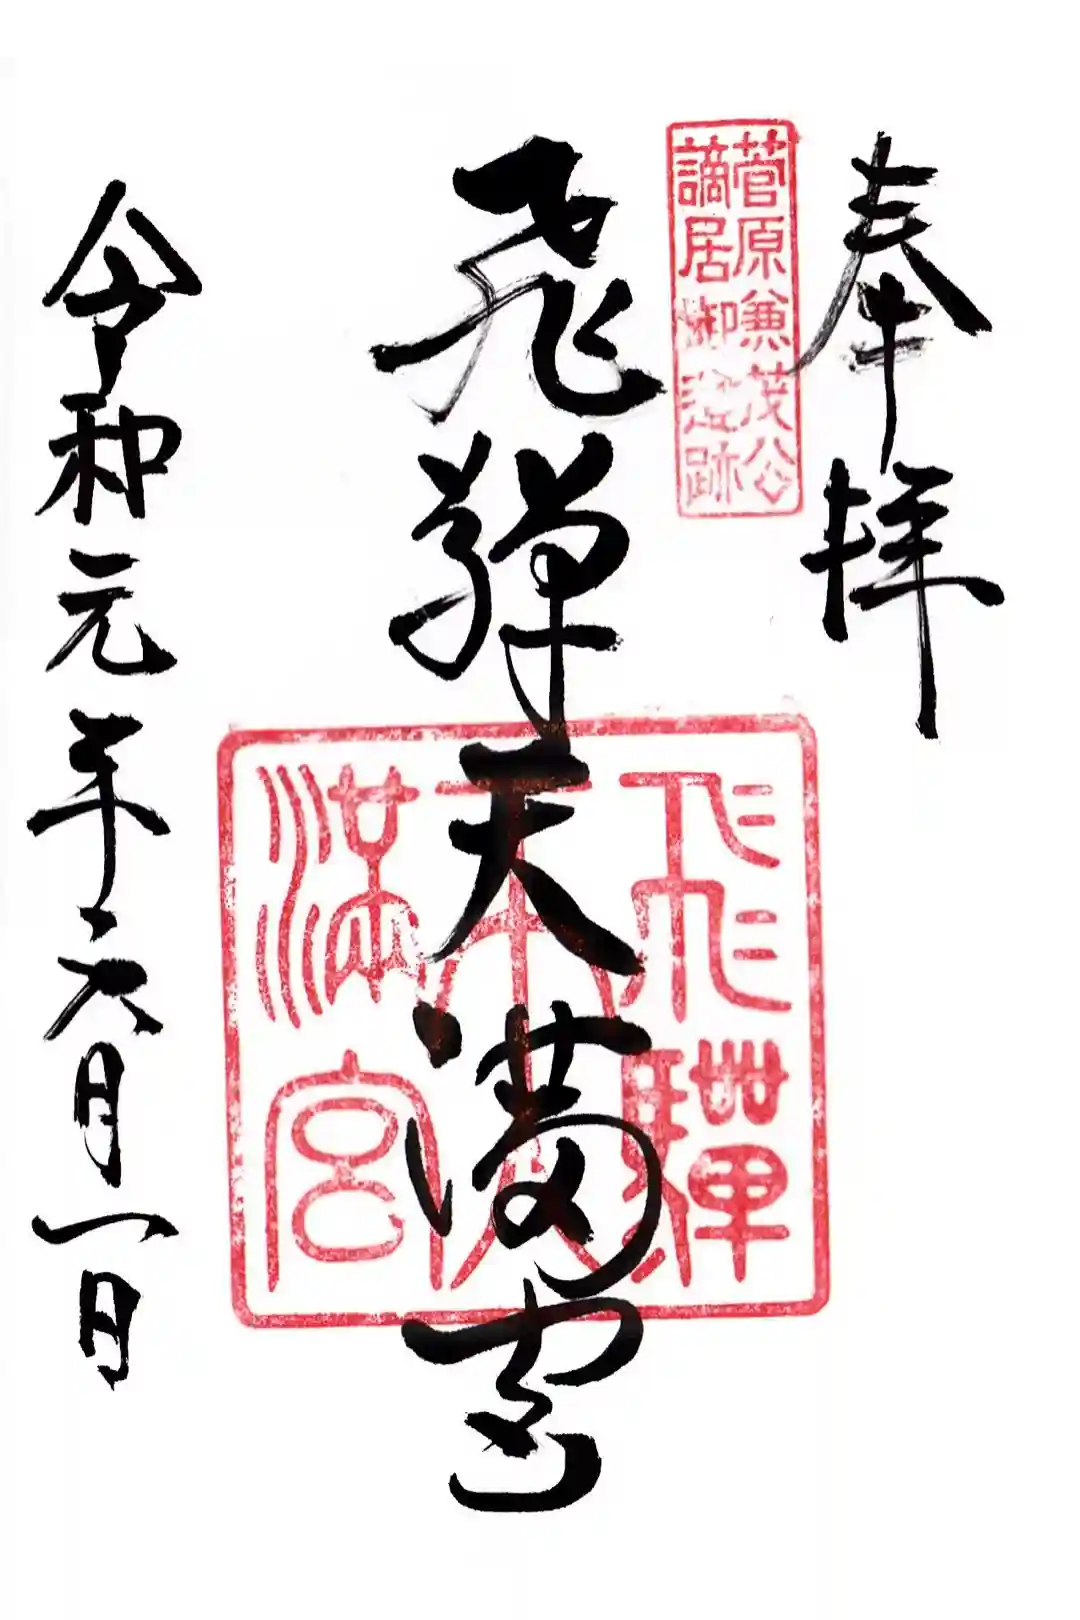 奉拝
菅原兼茂公
謫居御遺跡
飛騨天満宮
飛驒
天
滿宮
令和元年六月一日